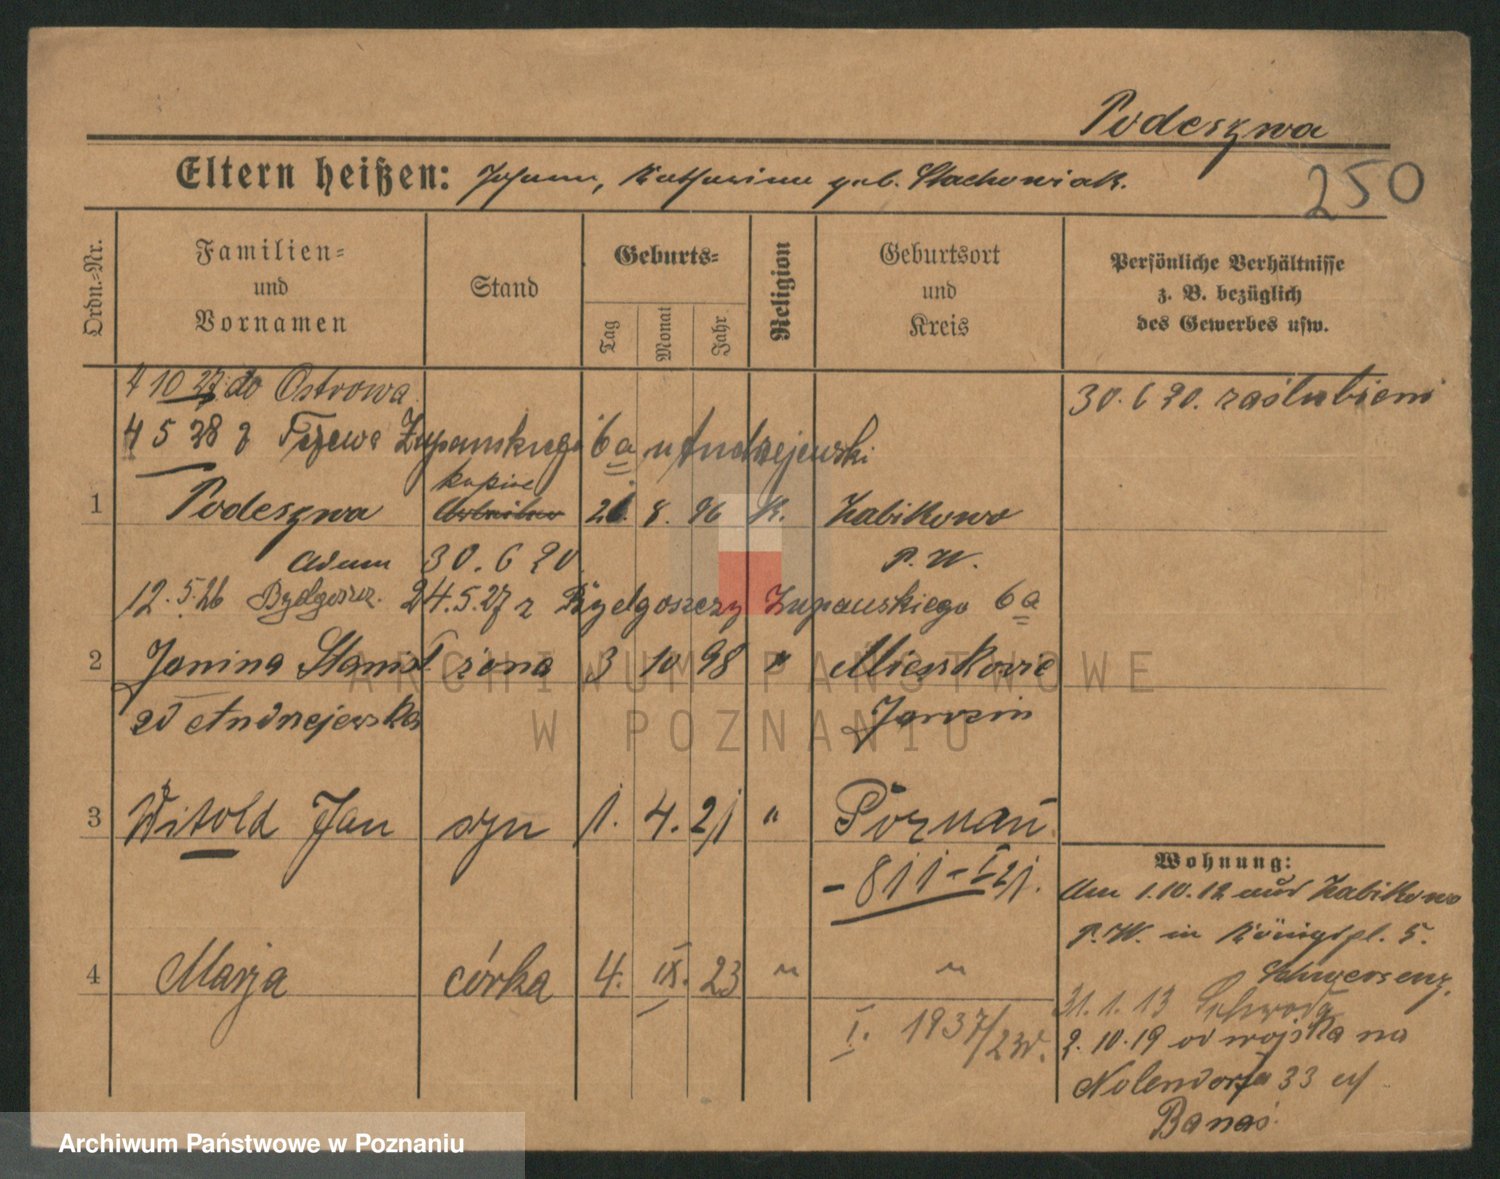 Podeszwa
250
Eltern heißen: Johann, Katharina geb. Stachowiak.
Ordn.-Nr.
Familien- und Vornamen
Stand
Geburts-
Tag
Monat
Jahr
Religion
Geburtsort und Kreis
Persönliche Verhältnisse z. B. bezüglich des Gewerbes usw.
4 10 27 do Ostrowa
30. 6 20. zaślubieni
4 5 28 z Tczewa Żupańskiego 6a u Andrzejewski
kupiec
1 Podeszwa 8. 96 K. Żabikowo
Adam 30. 6 20. P. W.
12. 5. 26 Bydgoszcz. 24. 5. 27 z Bydgoszczy Żupańskiego 6a
2 Janina Stanisł żona 3 10 98 " Mieszków
zd Andrzejewska Jarocin
3 Witold Jan syn 1. 4. 21 " Poznań
- 811 - I 21.
4 Marja córka 4. IX. 23 " "
I. 1937/
Wohnung:
Am 1. 10. 12 aus Żabikowo
P. W. in Königspl. 5.
Schwersenz.
31. 1. 13 Schroda
2. 10. 19 od wojska na
Nolendorfa 33 u/
Banaś
ARCHIWUM PAŃSTWOWE
W POZNANIU
Archiwum Państwowe w Poznaniu